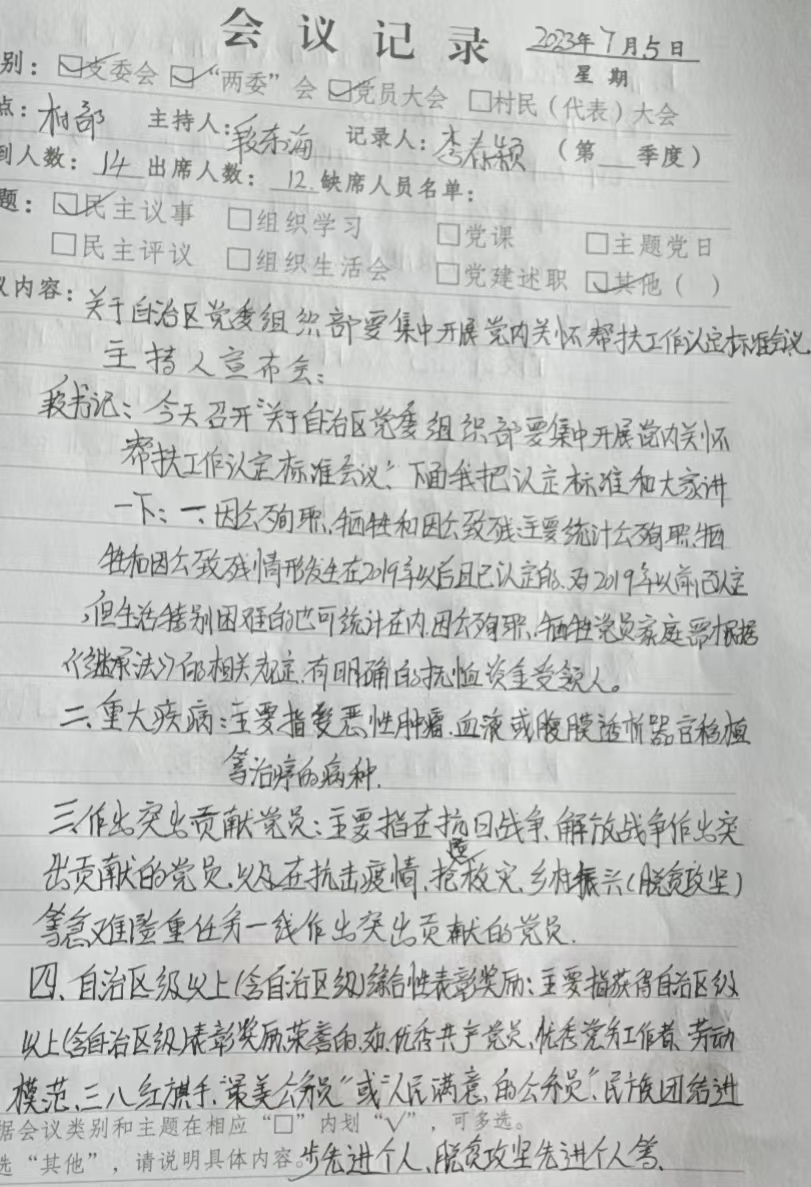 会 议 记 录 2023年7月5日
星 期
别：☑支委会 ☑“两委”会 ☑党员大会 □村民（代表）大会
点：村部 主持人：段东海 记录人：李春颖 （第 季度）
到人数：14 出席人数：12. 缺席人员名单：
题：☑民主议事 □组织学习 □党课 □主题党日
□民主评议 □组织生活会 □党建述职 ☑其他（ ）
议内容：关于自治区党委组织部要集中开展党内关怀帮扶工作认定标准会议.
主持人宣布会：
段书记：今天召开“关于自治区党委组织部要集中开展党内关怀
帮扶工作认定标准会议”.下面我把认定标准和大家讲
一下：一、因公殉职、牺牲和因公致残：主要统计公殉职.牺
牲和因公致残情形发生在2019年以后且已认定的、对2019年以前已认定
，但生活特别困难的也可统计在内.因公殉职、牺牲党员家庭需根据
《继承法》的相关规定.有明确的抚恤资金受领人。
二、重大疾病：主要指受恶性肿瘤、血液或腹膜透析器官移植
等治疗的病种.
三、作出突出贡献党员：主要指在抗日战争、解放战争作出突
出贡献的党员.以及在抗击疫情、抢险救灾、乡村振兴（脱贫攻坚）
等急难险重任务一线作出突出贡献的党员.
四、自治区级以上（含自治区级）综合性表彰奖励：主要指获得自治区级
以上（含自治区级）表彰奖励荣誉的、如、优秀共产党员、优秀党务工作者、劳动
模范、三八红旗手、“最美公务员”或“人民满意的公务员”、民族团结进
据会议类别和主题在相应“□”内划“√”，可多选。
选“其他”，请说明具体内容。步先进个人、脱贫攻坚先进个人等、